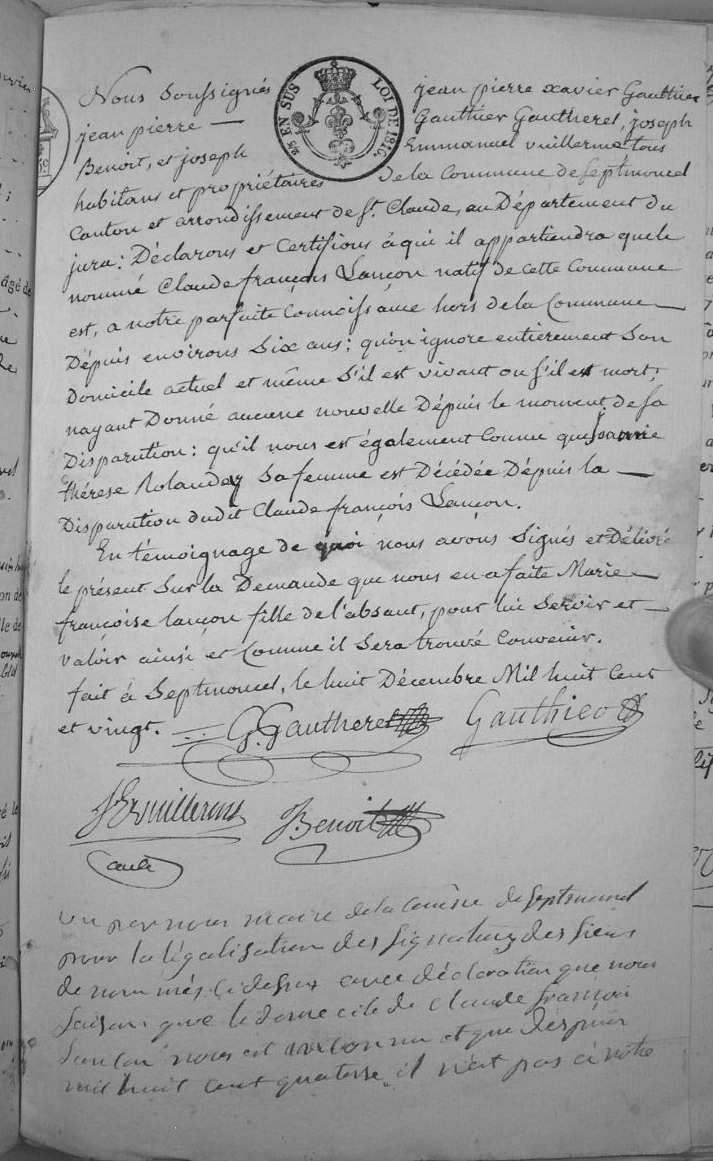 Nous soussignés jean pierre xavier Gauthier
jean pierre — Gauthier Gautheret, joseph
Benoit, et joseph Emmanuel vuillerme tous
habitans et propriétaires de la Commune de septmoncel
Canton et arrondissement de St. Claude, au Département du
jura: Déclarons et Certifions à qui il appartiendra que le
nommé Claude françois Lançon natif de cette Commune
est, a notre parfaite Connoissance hors de la Commune —
Dépuis environs Six ans; qu'on ignore entierement Son
Domicile actuel et même S'il est vivant ou s'il est mort;
nayant Donné aucune nouvelle Dépuis le moment de sa
Disparution: qu'il nous est également Connu que Jeanne
thérese Rolandez Sa femme est Décédée Dépuis la —
Disparution dudit Claude françois Lançon.
En témoignage de quoi nous avons Signés et Délivré
le présent Sur la Demande que nous en a faite Marie —
françoise lançon fille de l'absant, pour lui Servir et —
valoir ainsi et Comme il Sera trouvé Convenir.
fait à Septmoncel, le huit Décembre Mil huit Cent
et vingt. G. Gautheret Gauthier
Benoit
vu par nous maire de la Comune de Septmoncel
pour la légalisation des signatures des sieurs
de nommés cidessus avec déclaration que nous
Savons que le domecile de Claude françois
Lançon nous est inconnu et que despuis
mil huit cent quatorse il n'est pas à notre
LOI DE 1816.
EN SUS